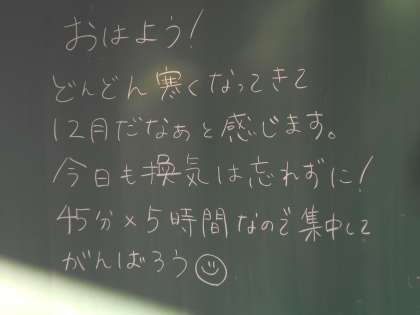 おはよう!
どんどん寒くなってきて
12月だなぁと感じます。
今日も換気は忘れずに!
45分×5時間なので集中して
がんばろう☺